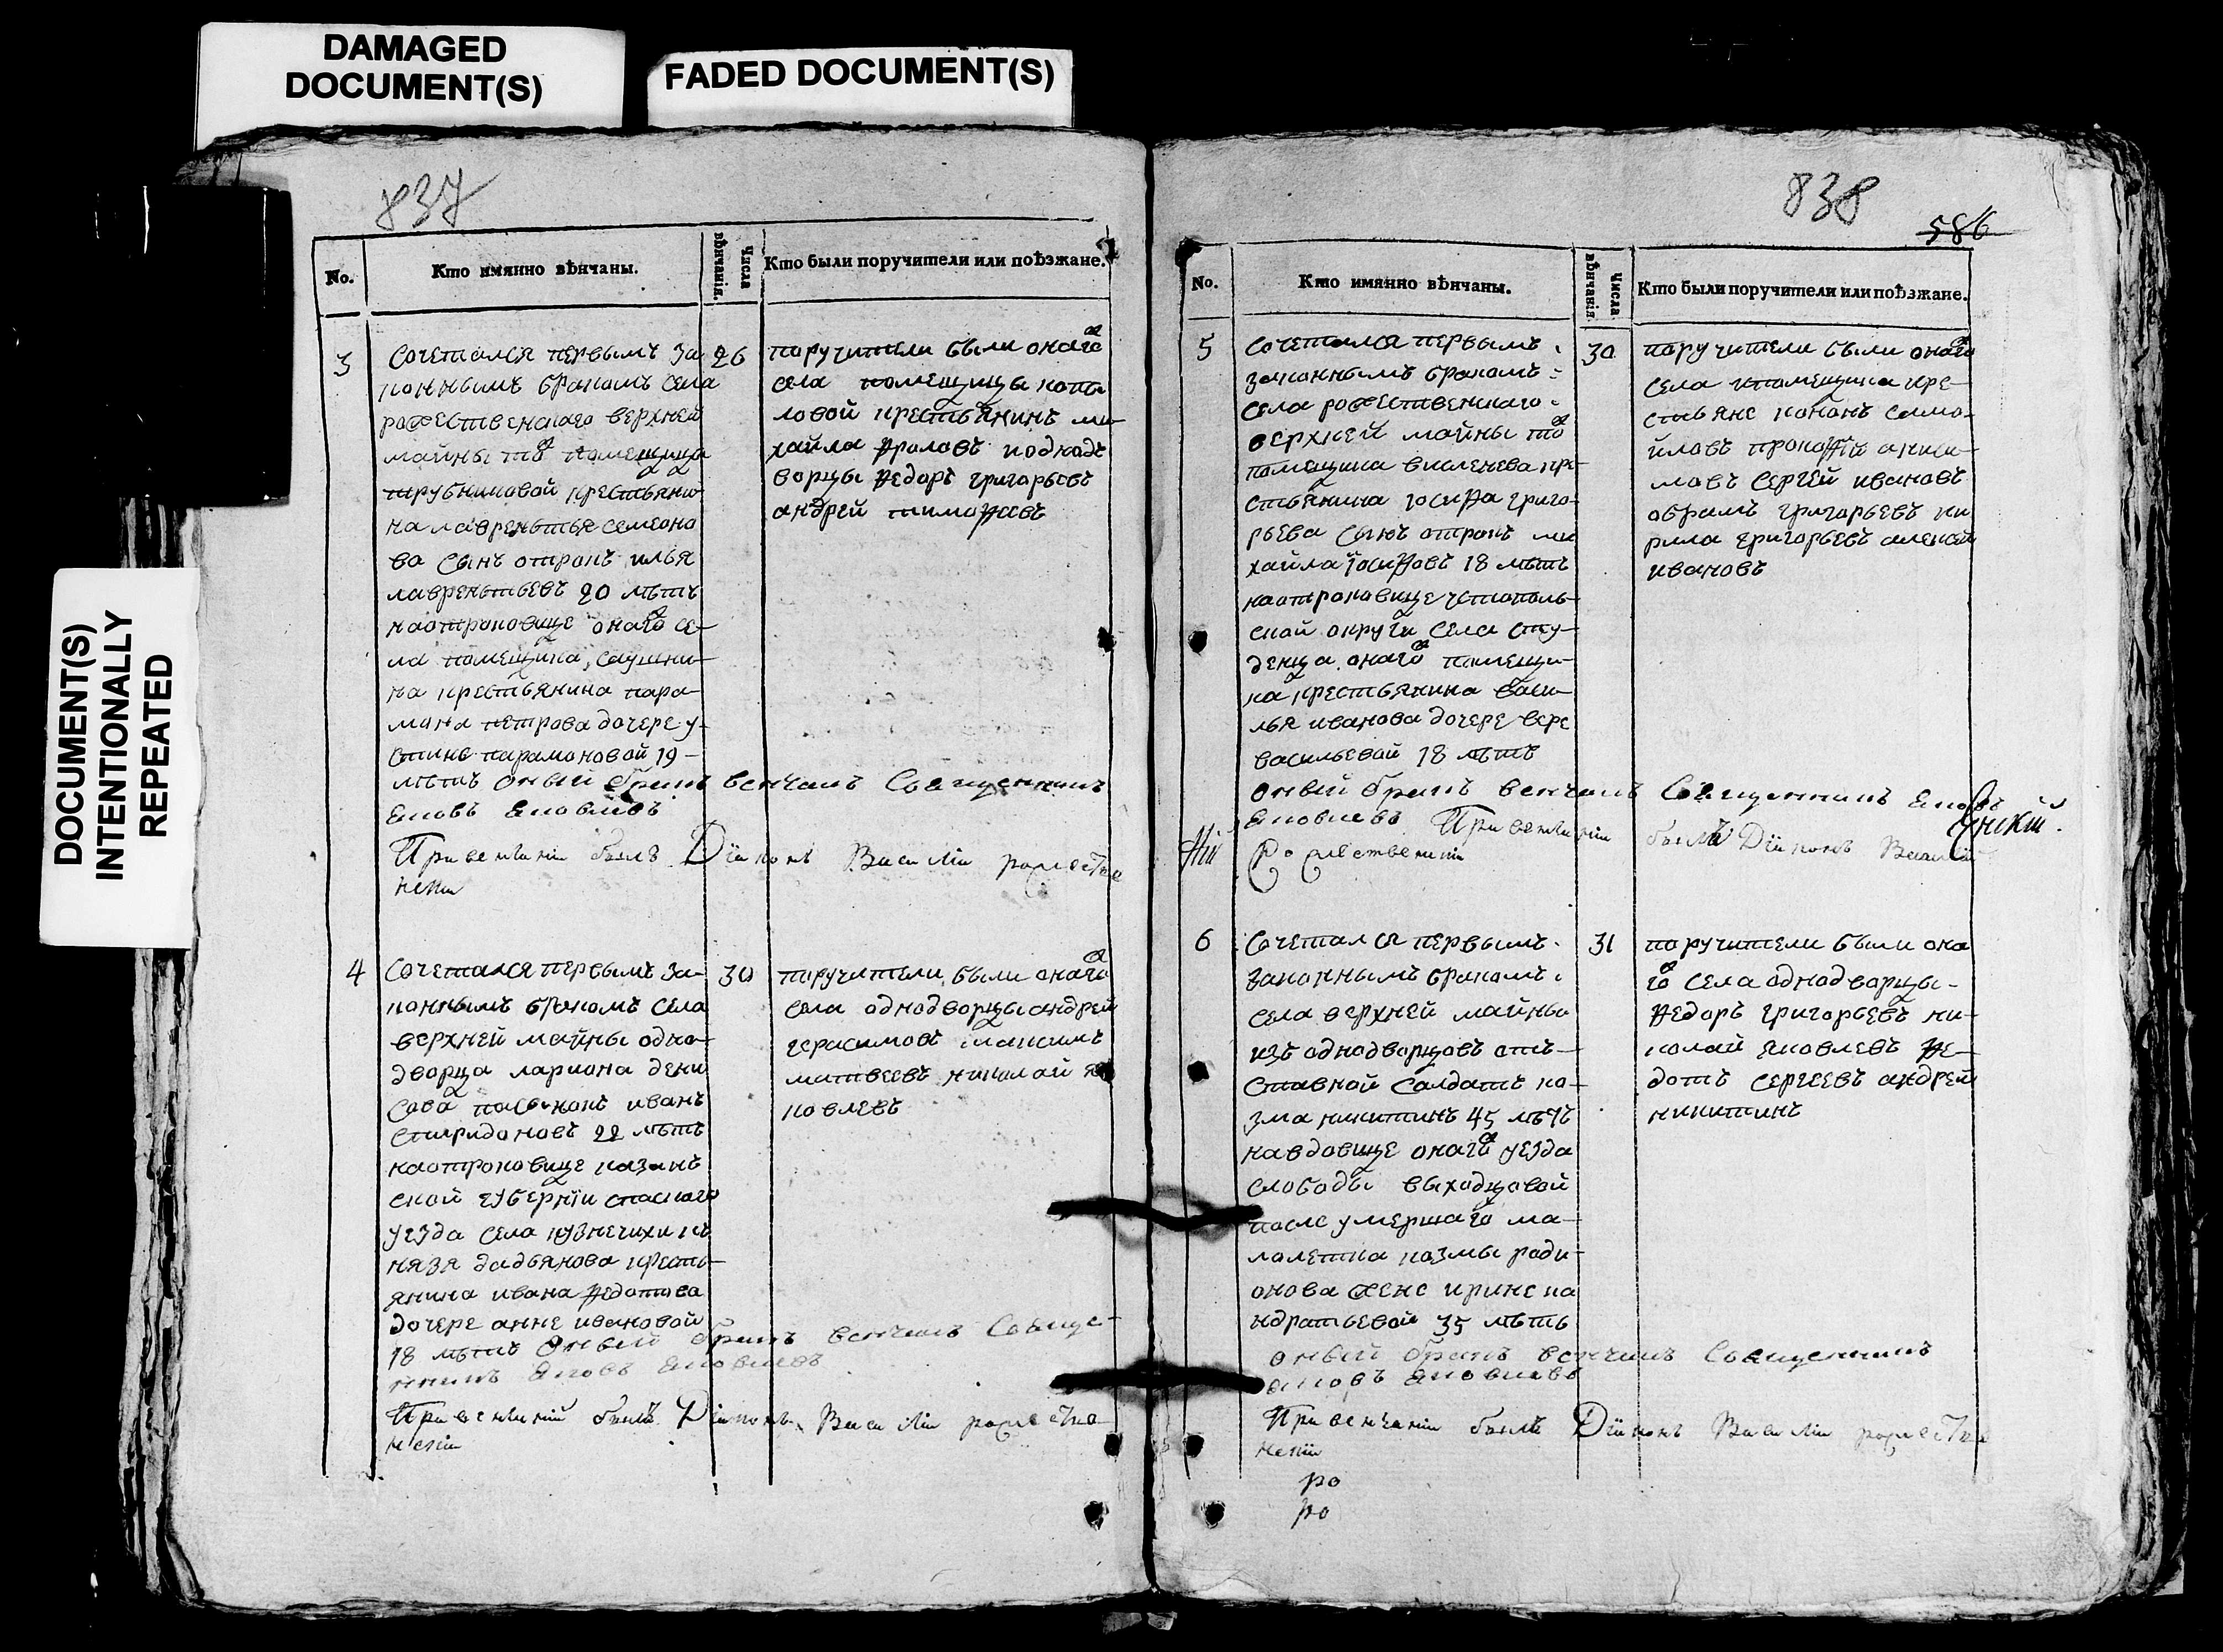 DAMAGED
DOCUMENT(S)
FADED DOCUMENT(S)
DOCUMENT(S)
INTENTIONALLY
REPEATED
837
No.
Кто имянно вѣнчаны.
Числа
вѣнчанія.
Кто были поручители или поѣзжане.
3
сочетался первымъ за
коннымъ бракомъ села
рожественскаго верхней
майны тожъ помещица
трубниковой крестьяни
на лаврентья семено
ва сынъ отрокъ илья
лаврентьевъ 20 лѣтъ
наотроковице онаго се-
ла помещика
на крестьянина пара-
мона петрова дочере у-
стинѣ парамоновой 19 -
лѣтъ оный бракъ венчалъ Священникъ
Яковъ Яковлевъ
При венчаніи былъ Діаконъ Василіи рожестве
нскіи
26
поручители были онаго
села помещицы копы
ловой крестьянинъ ми
хайла фроловъ и однод
ворцы федоръ григорьевъ
андрей тимофеевъ
4
сочетался первымъ за-
коннымъ бракомъ села
верхней майны одно-
дворца лариона дени
сова пасынокъ иванъ
спиридоновъ 22 лѣтъ
наотроковице казанъ
ской губерніи спаскаго
уезда села кузнечихи кн
нязя дадьянова кресть-
янина ивана федотова
дочере анне ивановой
18 лѣтъ Оный бракъ венчалъ Священ-
никъ Яковъ Яковлевъ
При венчаніи былъ Діаконъ Василіи рожестве
нскіи
30
поручители были онаго
села однодворцы андрей
герасимовъ максимъ
матвеевъ николай я
ковлевъ
838
586
No.
Кто имянно вѣнчаны.
Числа
вѣнчанія.
Кто были поручители или поѣзжане.
5
сочетался первымъ
законнымъ бракомъ
села рожественскаго
верхней майны тожъ
помещика висленева кре-
стьянина іосифа григо-
рьева сынъ отрокъ ми
хайла іосифовъ 18 лѣтъ
наотроковице чстополь-
ской округи села сту-
денца онаго помещи-
ка крестьянина васи-
лья иванова дочере вере
васильевой 18 лѣтъ
оный бракъ венчалъ Священникъ Яковъ
Яковлевъ При венчаніи былъ Діаконъ Василіи
Рожественскіи
30
поручители были онаго
села и помещика кре-
стьяне кононъ само-
йловъ прокофій аниси-
мовъ сергей ивановъ
абрамъ григорьевъ ки
рила григорьевъ алексей
ивановъ
6
сочетался первымъ
законнымъ бракомъ
села верхней майны
изъ однодворцовъ отъ-
ставной салдатъ ко-
зма никитинъ 45 лѣтъ
навдовице онаго уезда
слободы выходцовой
после умершаго ма-
лолетка козмы роди-
онова жене ирине ко
ндратьевой 35 лѣтъ
оный бракъ венчалъ Священникъ
Яковъ Яковлевъ
При венчаніи былъ Діаконъ Василіи рожестве
нскіи
ро
ро
31
поручители были она
го села однодворцы
федоръ григорьевъ ни-
колай яковлевъ фе-
дотъ сергеевъ андрей
никитинъ